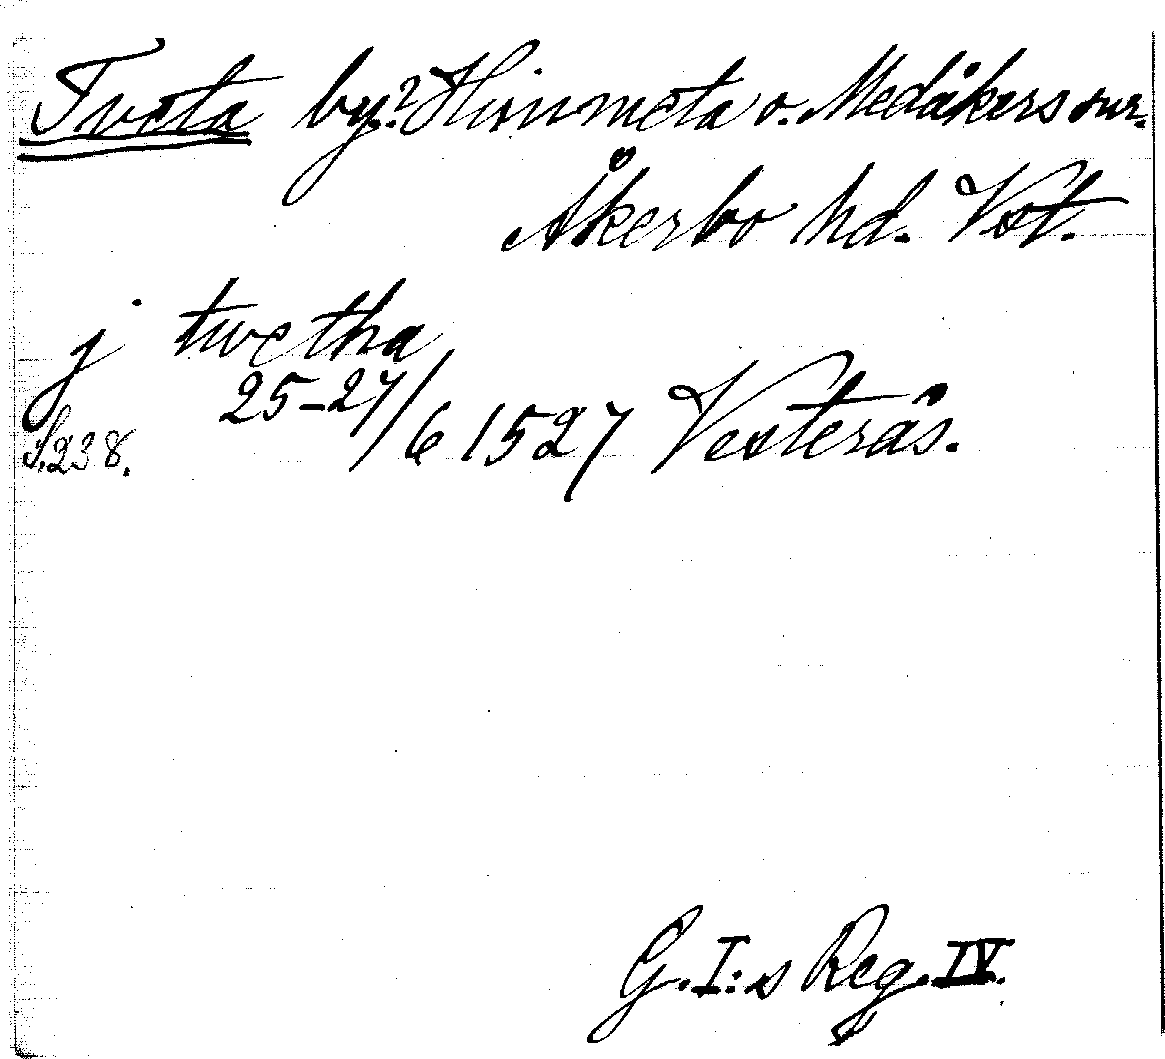 Tveta by? Himmeta o. Medåkers snr.
Åkerbo hd. Vst.
j twetha
25-27/6 1527 Vesterås.
S.238.
G.I:s Reg. IV.